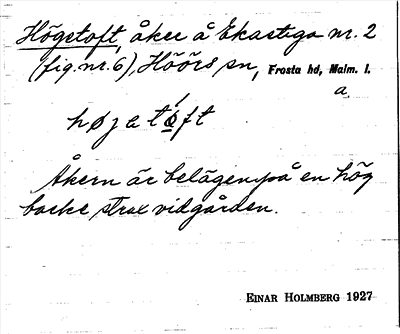 Högetoft, åker å Ekastiga nr. 2
(fig. nr. 6), Höörs sn, Frosta hd, Malm. l.
a
høʒetȯft
Åkern är belägen på en hög
backe strax vid gården.
EINAR HOLMBERG 1927